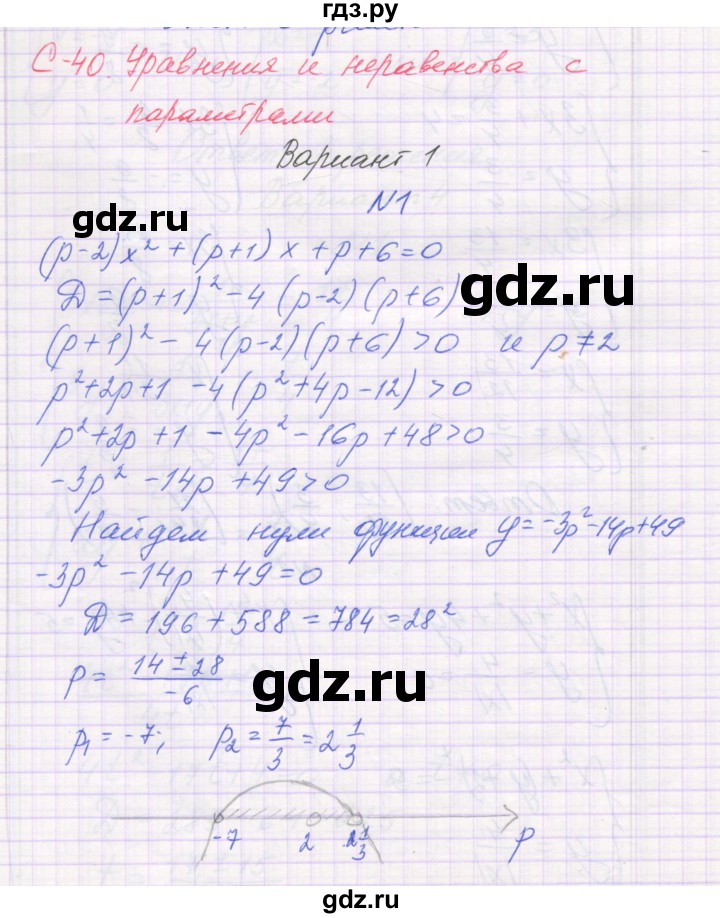 гдз.ру
С-40. Уравнения и неравенства с
параметрами
Вариант 1
gdz.ru
N1
(p-2)x² + (p+1)x + p+6=0
gdz.ru
D = (p+1)² - 4(p-2)(p+6)
(p+1)² - 4(p-2)(p+6) > 0 и p ≠ 2
p²+2p+1 - 4(p²+4p-12) > 0
p²+2p+1 - 4p² - 16p + 48 > 0
-3p² - 14p + 49 > 0
Найдем нули функции y = -3p²-14p+49
-3p² - 14p + 49 = 0
D = 196 + 588 = 784 = 28²
p = (14 ± 28)/(-6)
gdz.ru
p₁ = -7; p₂ = 7/3 = 2 1/3
-7 2 2 1/3 p
gdz.ru
gdz.ru